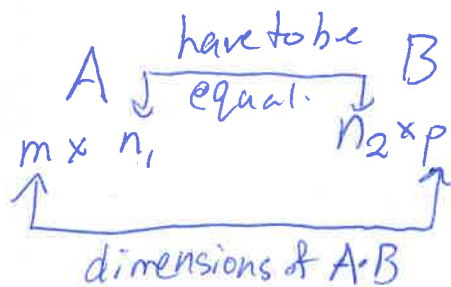 have to be
A B
equal.
m × n₁ n₂ × p
dimensions of A·B